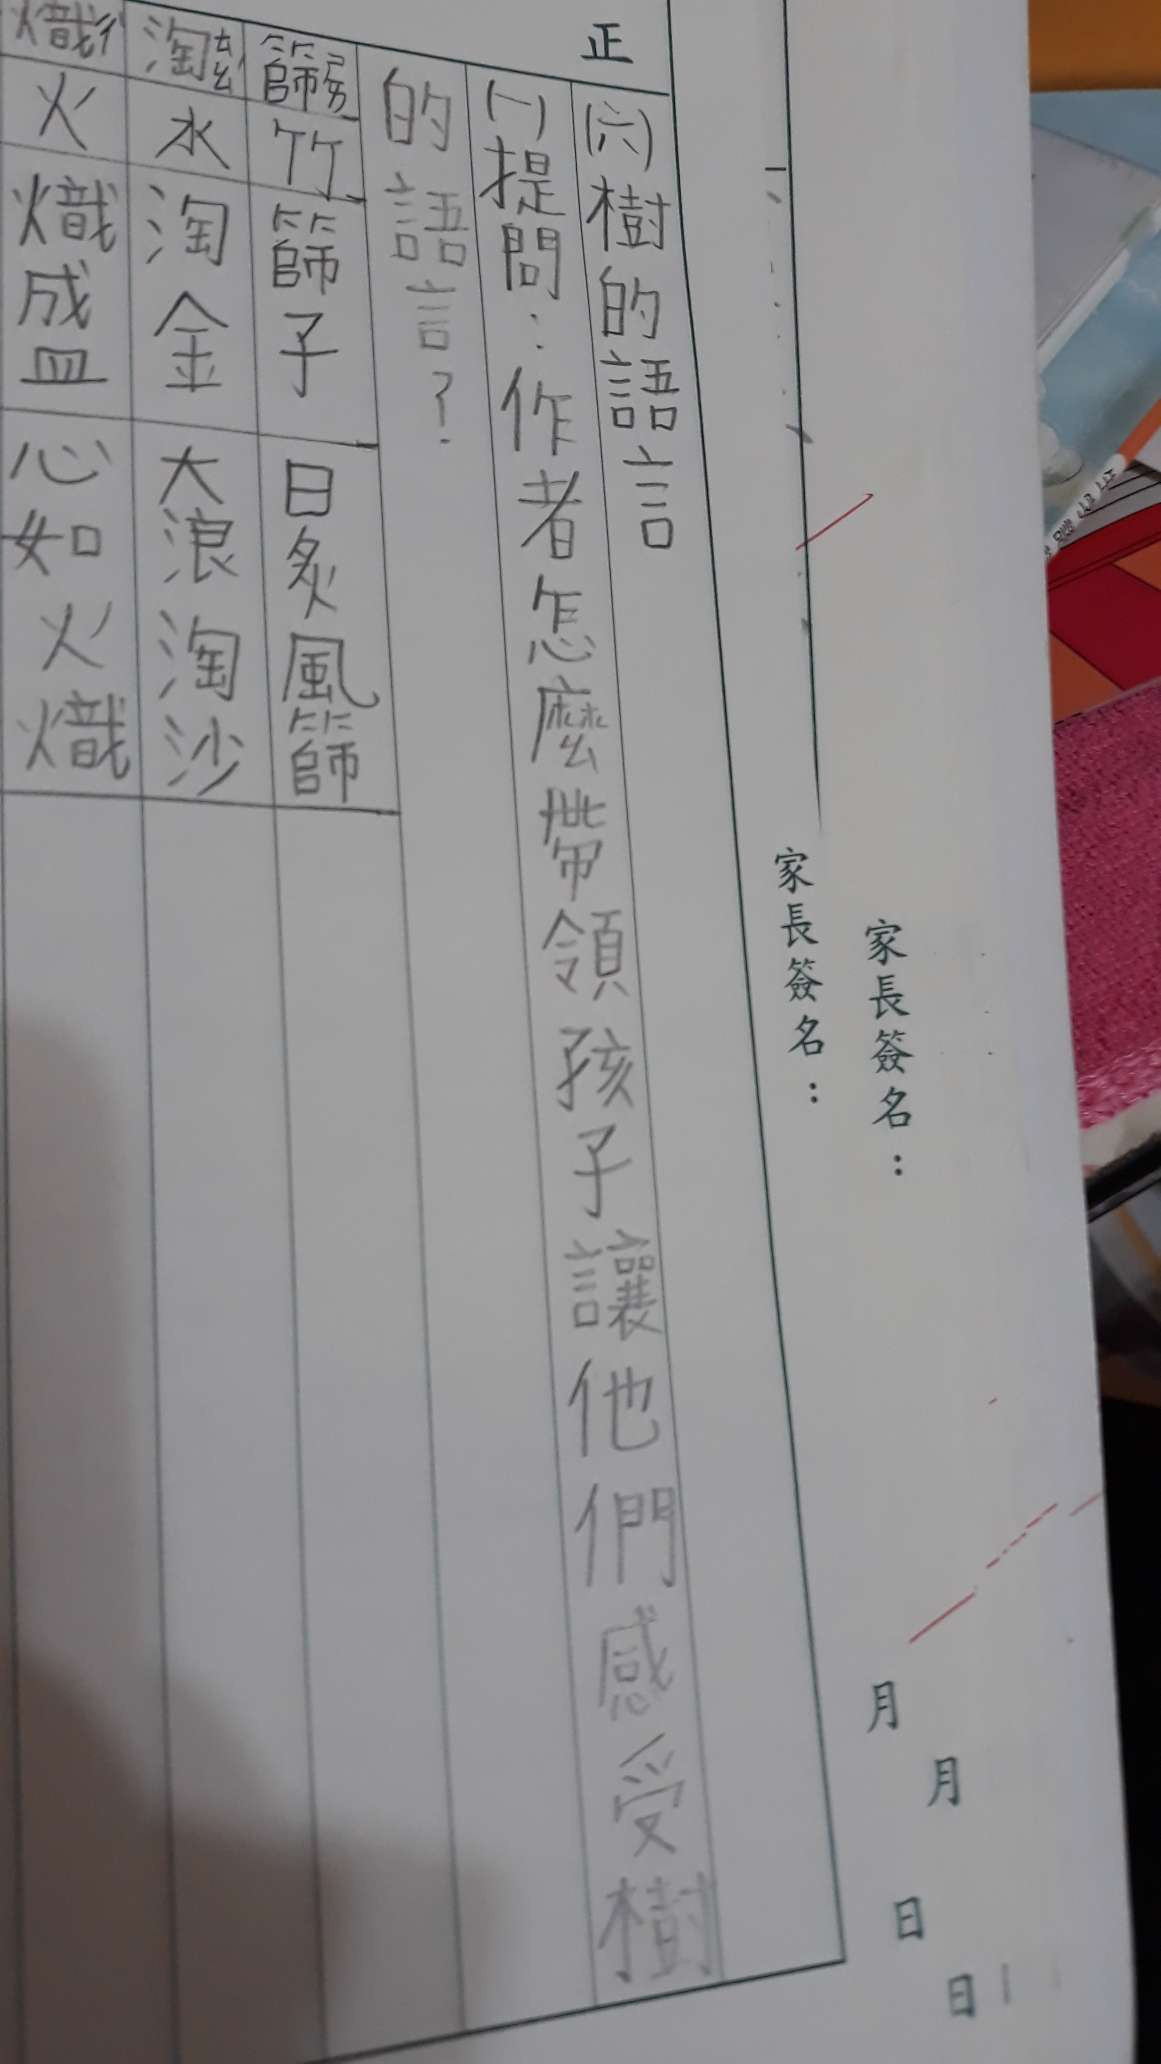 家長簽名：
月
日
家長簽名：
月
日
正
(六)樹的語言
(一)提問：作者怎麼帶領孩子讓他們感受樹
的語言？
篩 竹 篩子 日炙風篩
淘 水 淘金 大浪淘沙
熾 火 熾盛 心如火熾